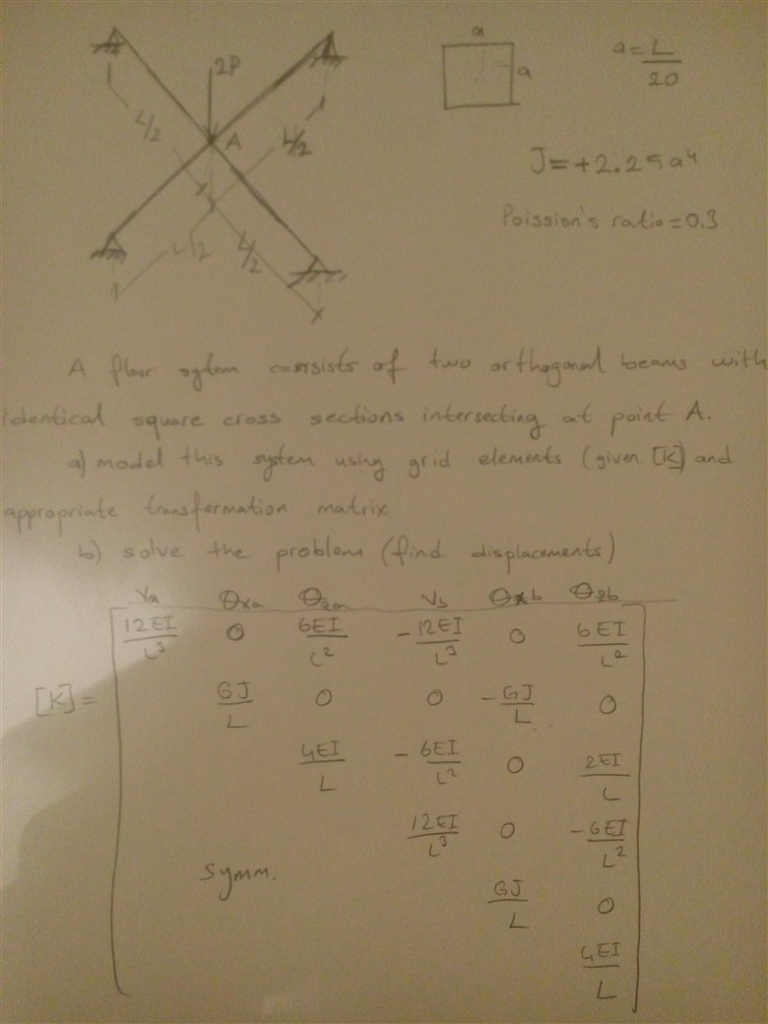 a
a = L/20
2P
a
A
L/2
L/2
J = +2.25a⁴
Poission's ratio = 0,3
L/2
L/2
A floor sytem consists of two orthogonal beams with
identical square cross sections intersecting at point A.
a) model this system using grid elements (given [K]) and
appropriate transformation matrix
b) solve the problem (find displacements)
Va θxa θza Vb θxb θzb
12EI/L³ 0 6EI/L² -12EI/L³ 0 6EI/L²
[K]= GJ/L 0 0 -GJ/L 0
4EI/L -6EI/L² 0 2EI/L
12EI/L³ 0 -6EI/L²
Symm. GJ/L 0
4EI/L